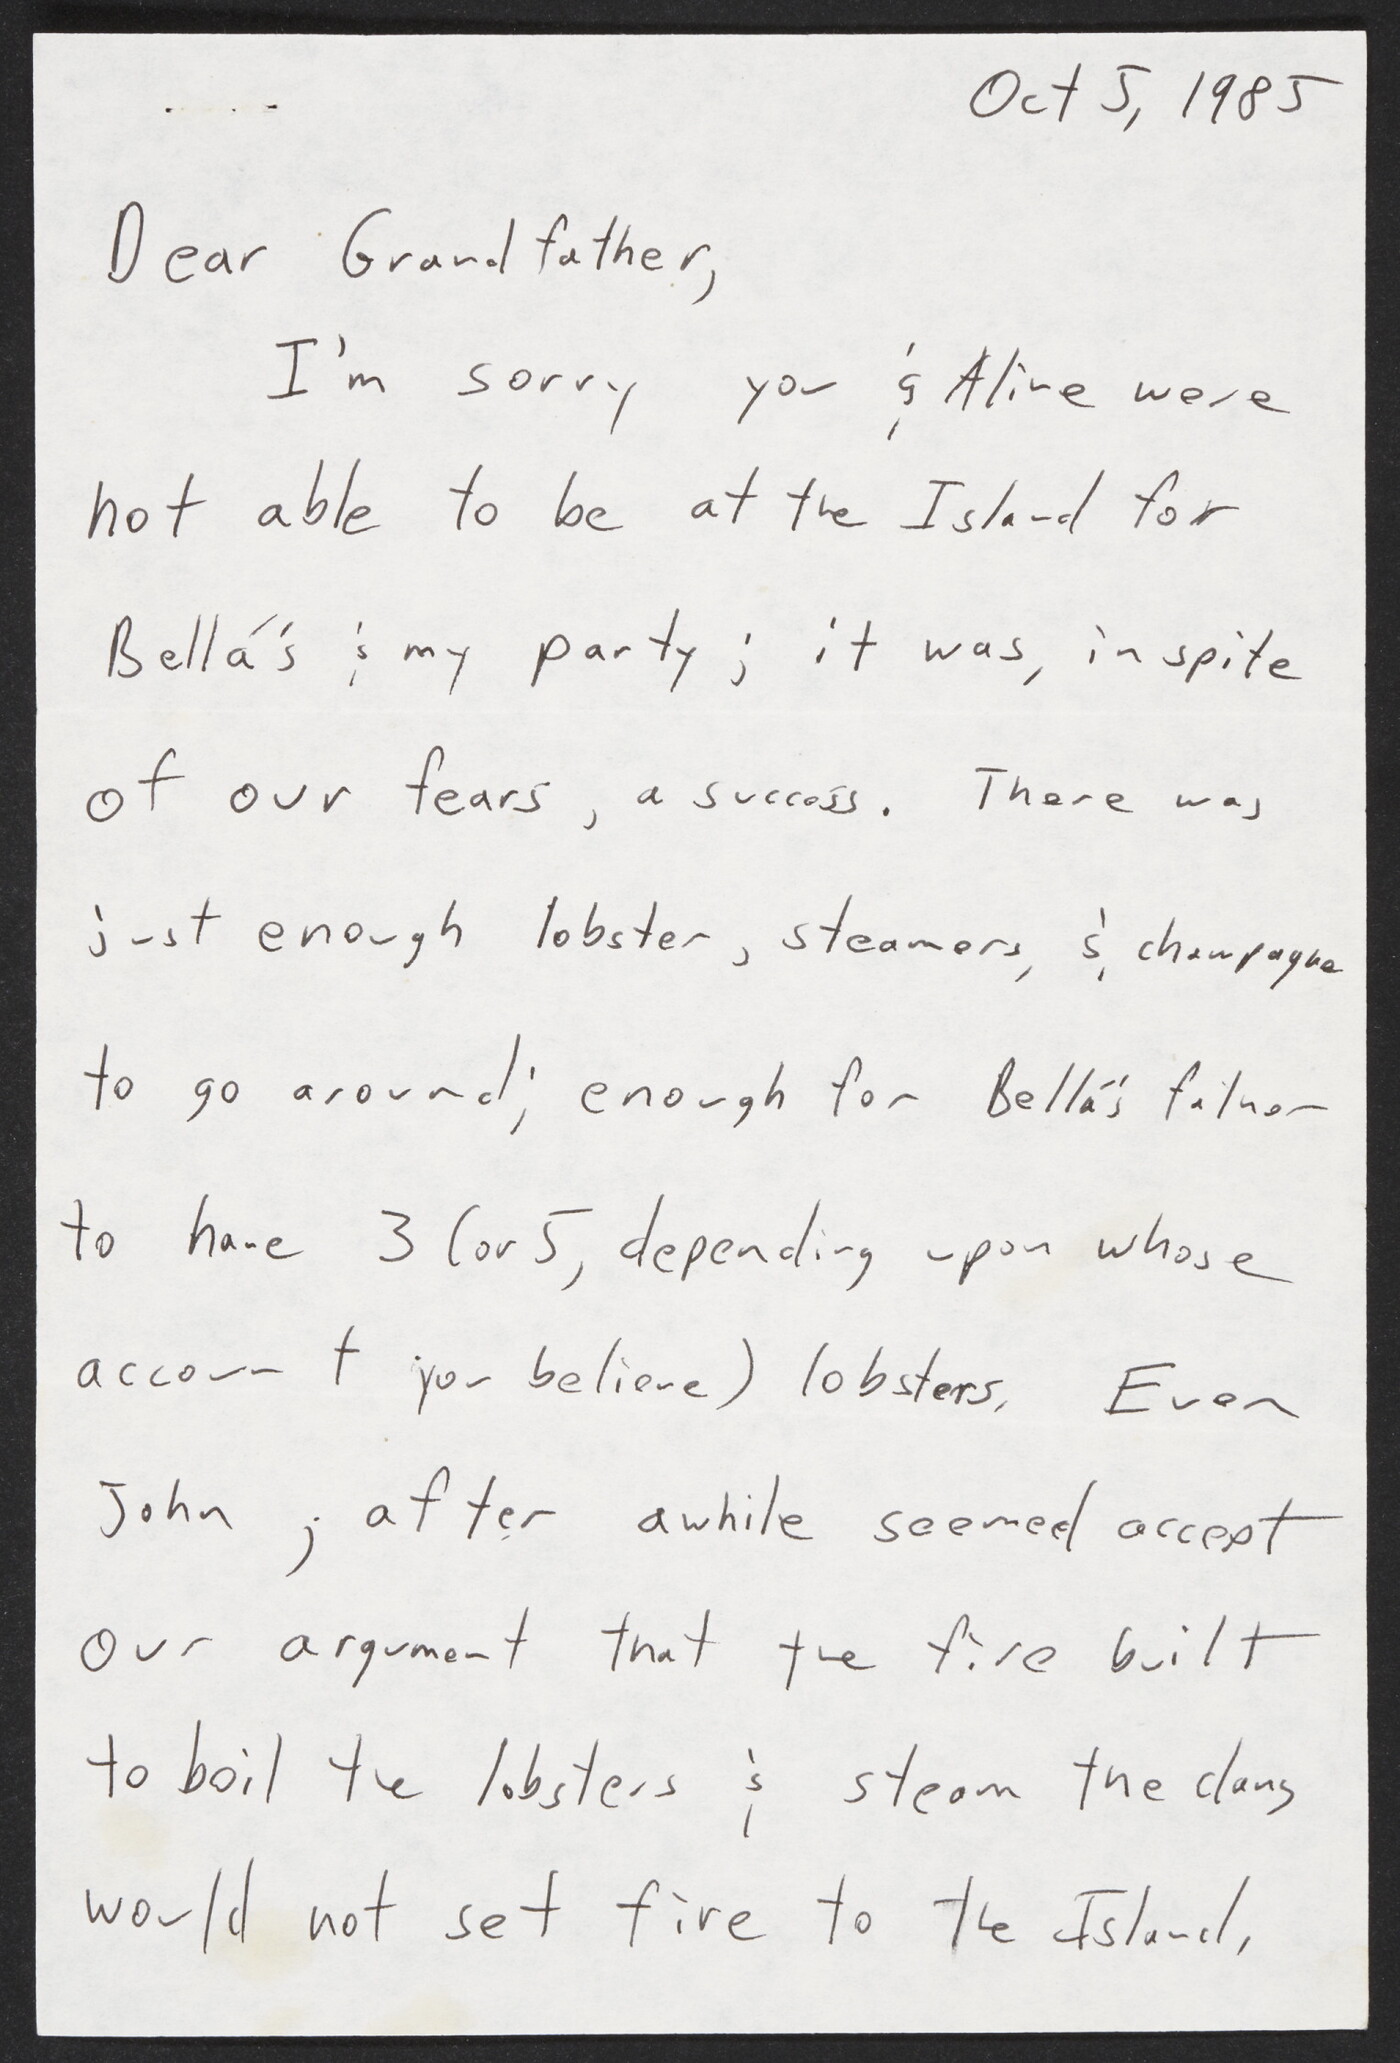 Oct 5, 1985
Dear Grandfather,
I'm sorry you & Aline were
not able to be at the Island for
Bellá's & my party; it was, inspite
of our fears, a success. There was
just enough lobster, steamers, & champagne
to go around; enough for Bellá's father
to have 3 (or 5, depending upon whose
account you believe) lobsters. Even
John, after awhile seemed accept
our argument that the fire built
to boil the lobsters & steam the clams
would not set fire to the Island.